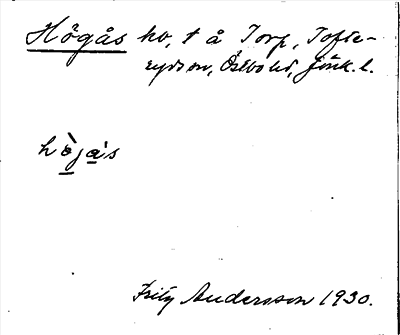 Högås hv, t å Torp, Tofte-
rydsn, Östbo hd, Jönk. l.
hòjás
Fritz Andersson 1930.